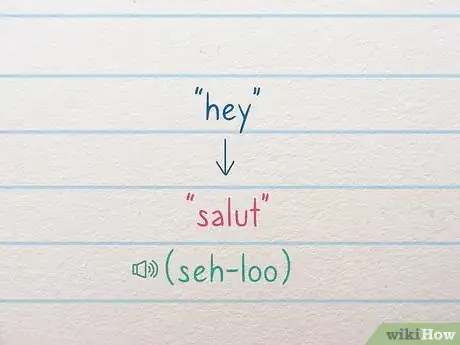 "hey"
"salut"
(seh-loo)
wikiHow